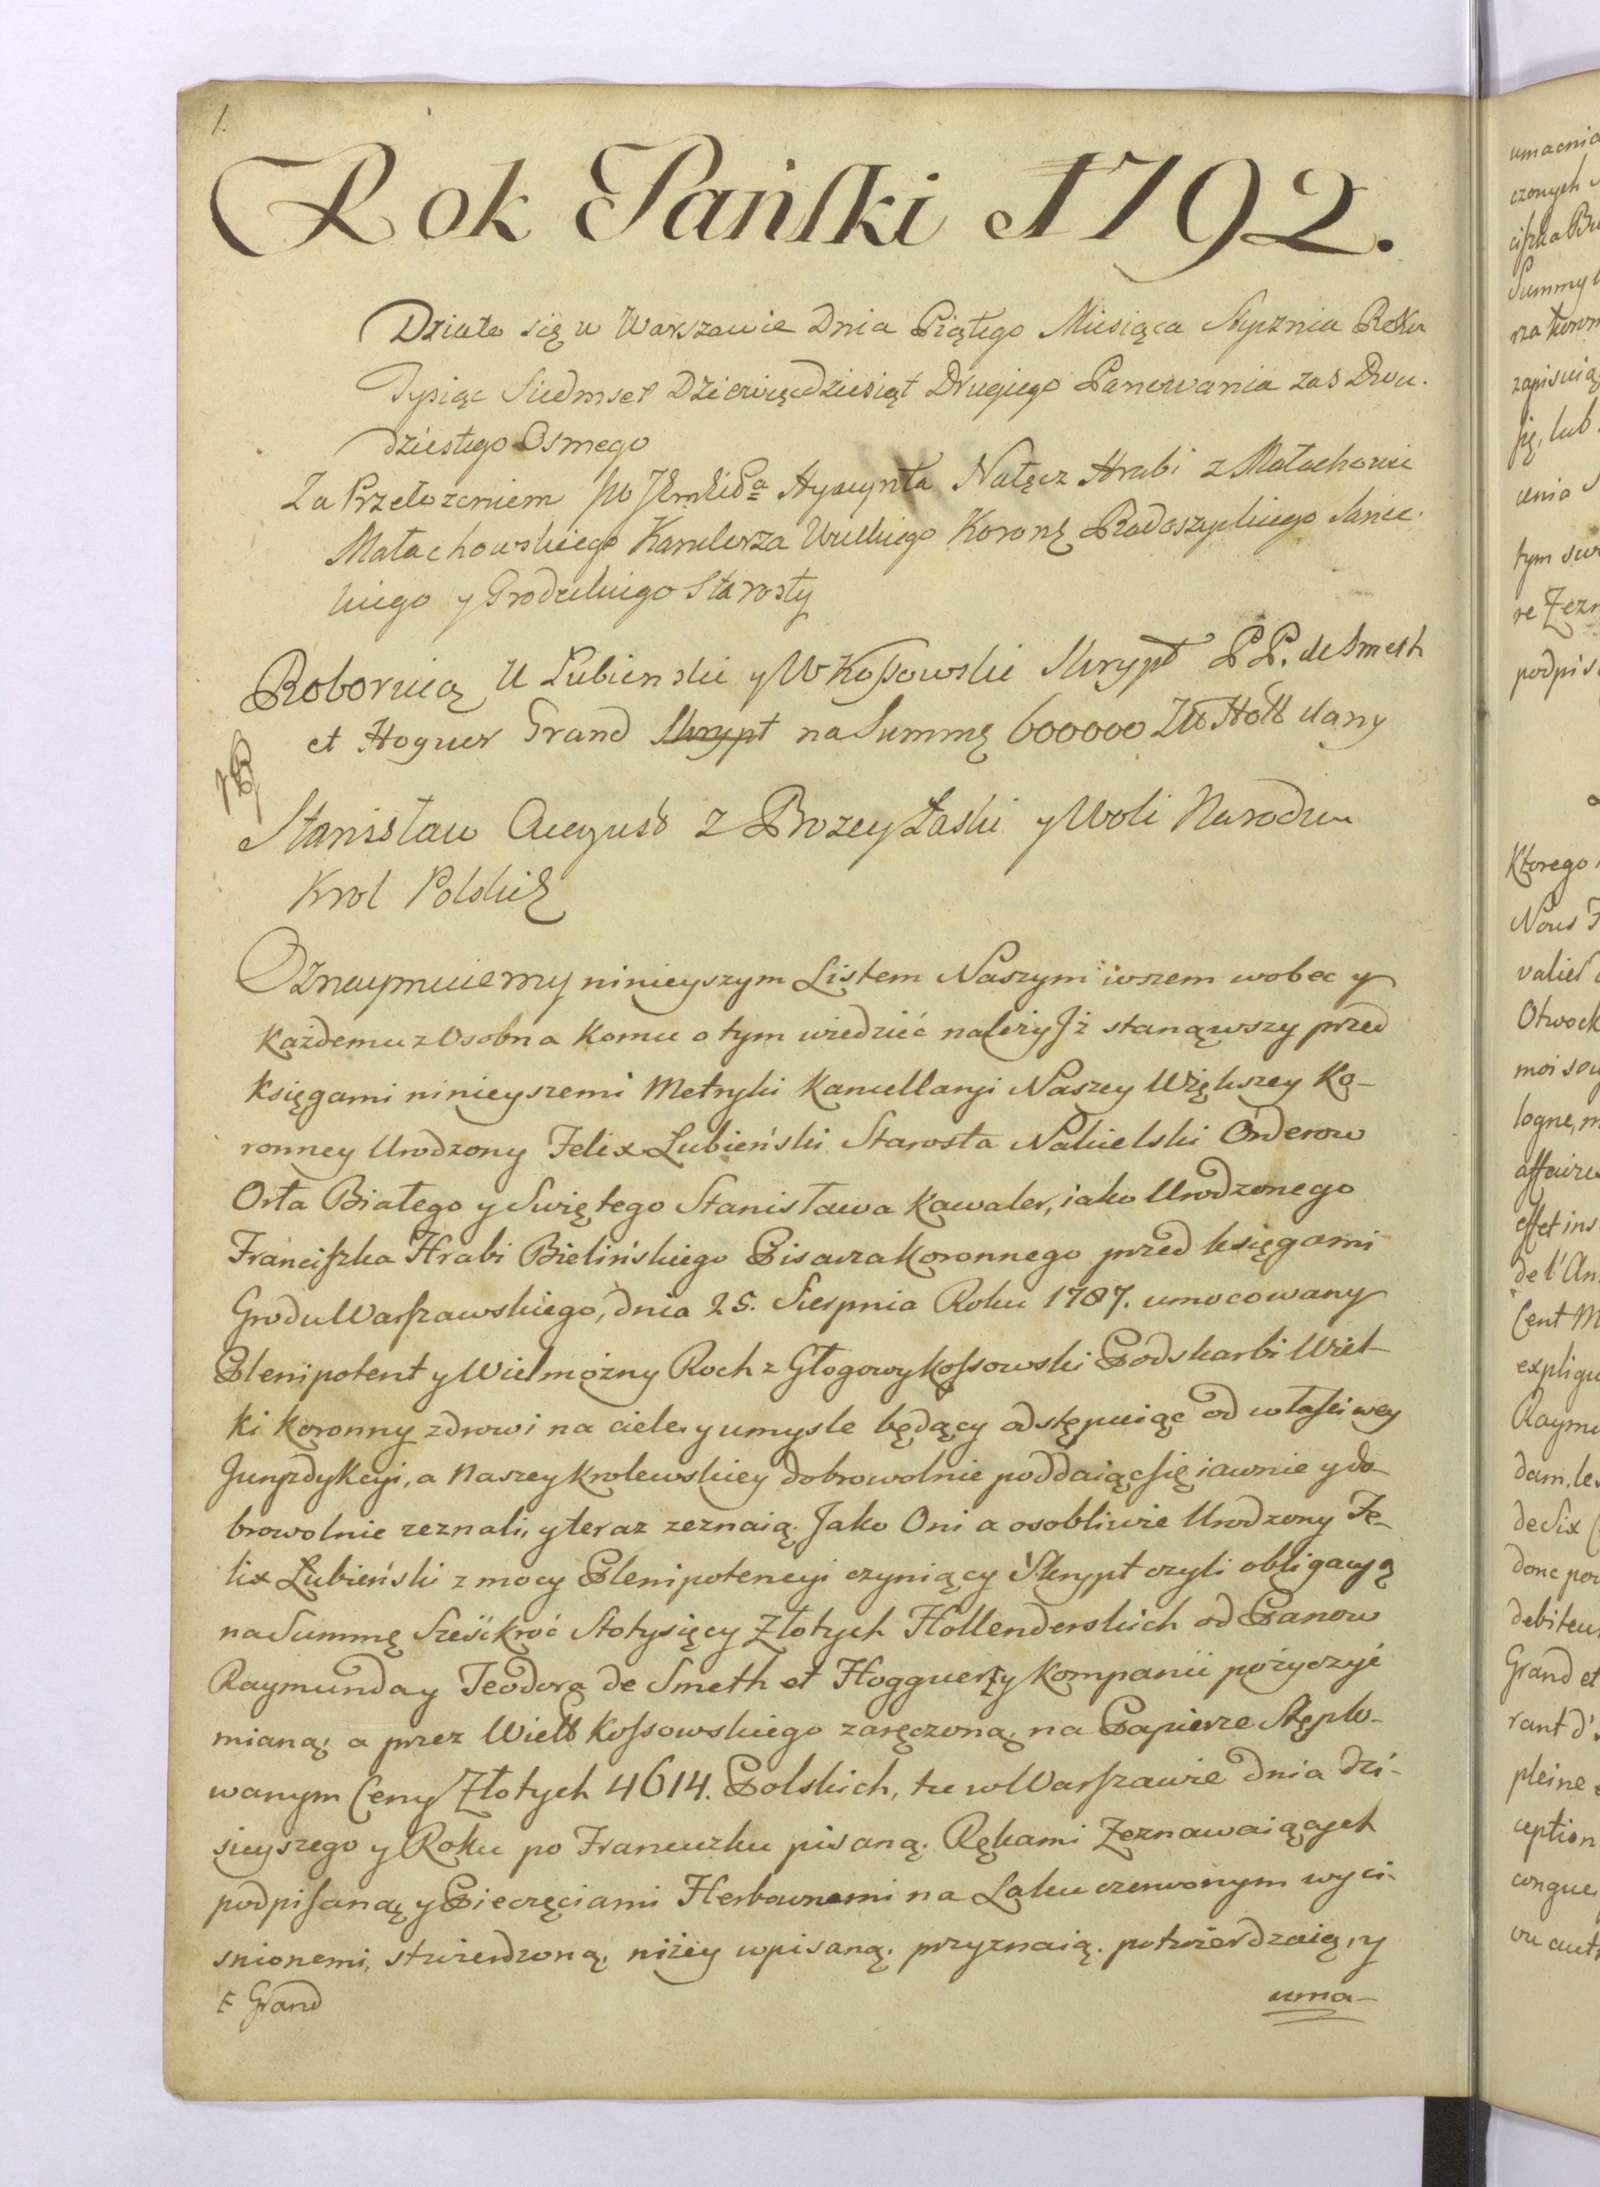 1.
Rok Pańſki 1792.
Działo się w Warszawie Dnia Piątego Miesiąca Stycznia Roku
Tysiąc Siedmset Dziewięcdziesiąt Drugiego Panowania zas Dwu-
dziestego Osmego
Za Przełozeniem Hyacynta Nałęcz Hrabi z Małachowic
Małachowskiego Kanclerza Wielkiego Koronę Radoszyckiego Sanec-
kiego y Grodeckiego Starosty
Roborucią U Lubienski y W Koſsowski Skrypt P.P. de Smeth
et Hoguer Grand Skrypt na Summę 600000 Holl dany
Stanisław August z Bozey Łaski y Woli Narodu
Krol Polski
Oznaymuiemy ninieyszym Listem Naszym wszem wobec y
każdemu z Osobna komu o tym wiedzieć należy Jż stanąwszy przed
księgami ninieyszemi Metryki Kancellaryi Naszey Większey Ko-
ronney Urodzony Felix Lubieński Starosta Nakielski Orderow
Orła Białego y Swiętego Stanisława Kawaler, iako Urodzonego
Franciſzka Hrabi Bielińskiego Pisarza Koronnego przed księgami
Grodu Warſzawskiego, dnia 25. Sierpnia Roku 1787. umocowany
Plenipotent y Wielmożny Roch z Głogowy Koſsowski Podskarbi Wiel-
ki Koronny zdrowi na ciele y umysle będący odstępuiąc od właſciwey
Juryzdykcyi, a Naszey Krolewskiey dobrowolnie poddaiąc ſię iawnie y do-
browolnie zeznali, y teraz zeznaią. Jako Oni a osobliwie Urodzony Fe-
lix Łubieński z mocy Plenipotencyi czyniący Skrypt czyli obligacyą
na Summę Sześćkroć Stotysięcy Złotych Hollenderskich od Panow
Raymunda y Teodora de Smeth et Hogguer y Kompanii pożyczyć
mianą; a przez Wielb Koſsowskiego zaręczoną, na Papierze Stęplo-
wanym Ceny Złotych 4614. Polskich, tu w Warſzawie dnia dzi-
sieyszego y Roku po Francuzku pisaną. Rękami Zeznawaiących
podpiſaną y Pieczęciami Herbownemi na Laku czerwonym wyci-
snionemi, stwierdzoną, niżey wpisaną. przyznaią. potwierdzaią, y
F Grand
uma-